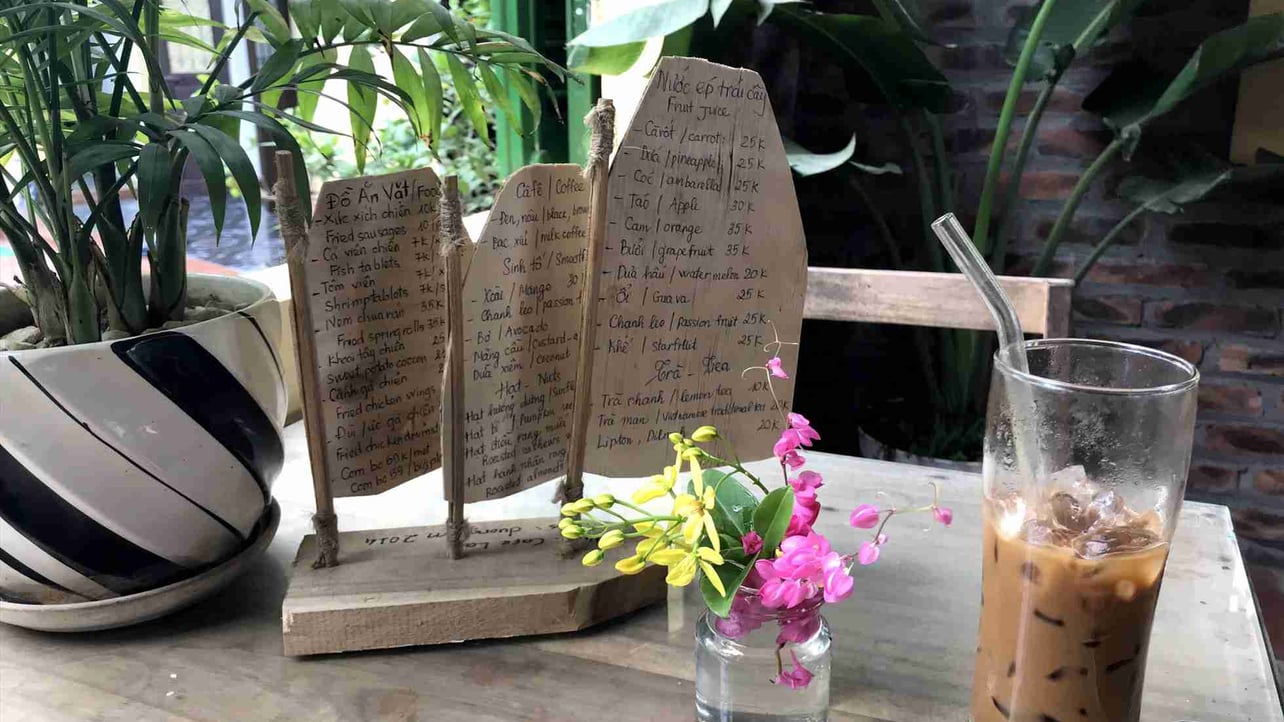 Đồ Ăn Vặt / Food
- Xúc xích chiên 10k
Fried sausages
- Cá viên chiên 7k
Fish tablets
- Tôm viên 7k
Shrimp tablets
- Nem chua rán 35k
Fried spring rolls
- Khoai tây chiên
sweet potato
- Cánh gà chiên
Fried chicken wings
- Đùi / ức gà chiên
Fried chicken
Com bo 69k / mẹt
Com bo 59
Café / Coffee
- Đen, nâu / blace,
- Bạc xỉu / milk coffee
Sinh tố / Smooth
- Xoài / Mango 30
- Chanh leo / passion
- Bơ / Avocado
- Mãng cầu / custard
- Dừa xiêm / coconut
Hạt - Nuts
- Hạt hướng dương / Sunfl
- Hạt bí / Pumpkin
- Hạt điều rang muối
Roasted cashews
- Hạt hạnh nhân rang
Roasted almond
Nước ép trái cây
Fruit juice
- Cà rốt / carrot 25K
- Dứa / pineapple 25K
- Cóc / ambarella 25K
- Táo / Apple 30K
- Cam / orange 35K
- Bưởi / grapefruit 35K
- Dưa hấu / water melon 20K
- Ổi / Guava 25K
- Chanh leo / passion fruit 25K
- Khế / starfruit 25K
Trà - Tea
Trà chanh / lemon tea 10K
Trà mạn / Vietnamese traditional tea
Lipton, 20K
2014